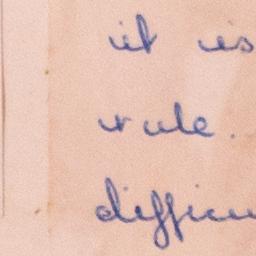 it is
rule.
difficu